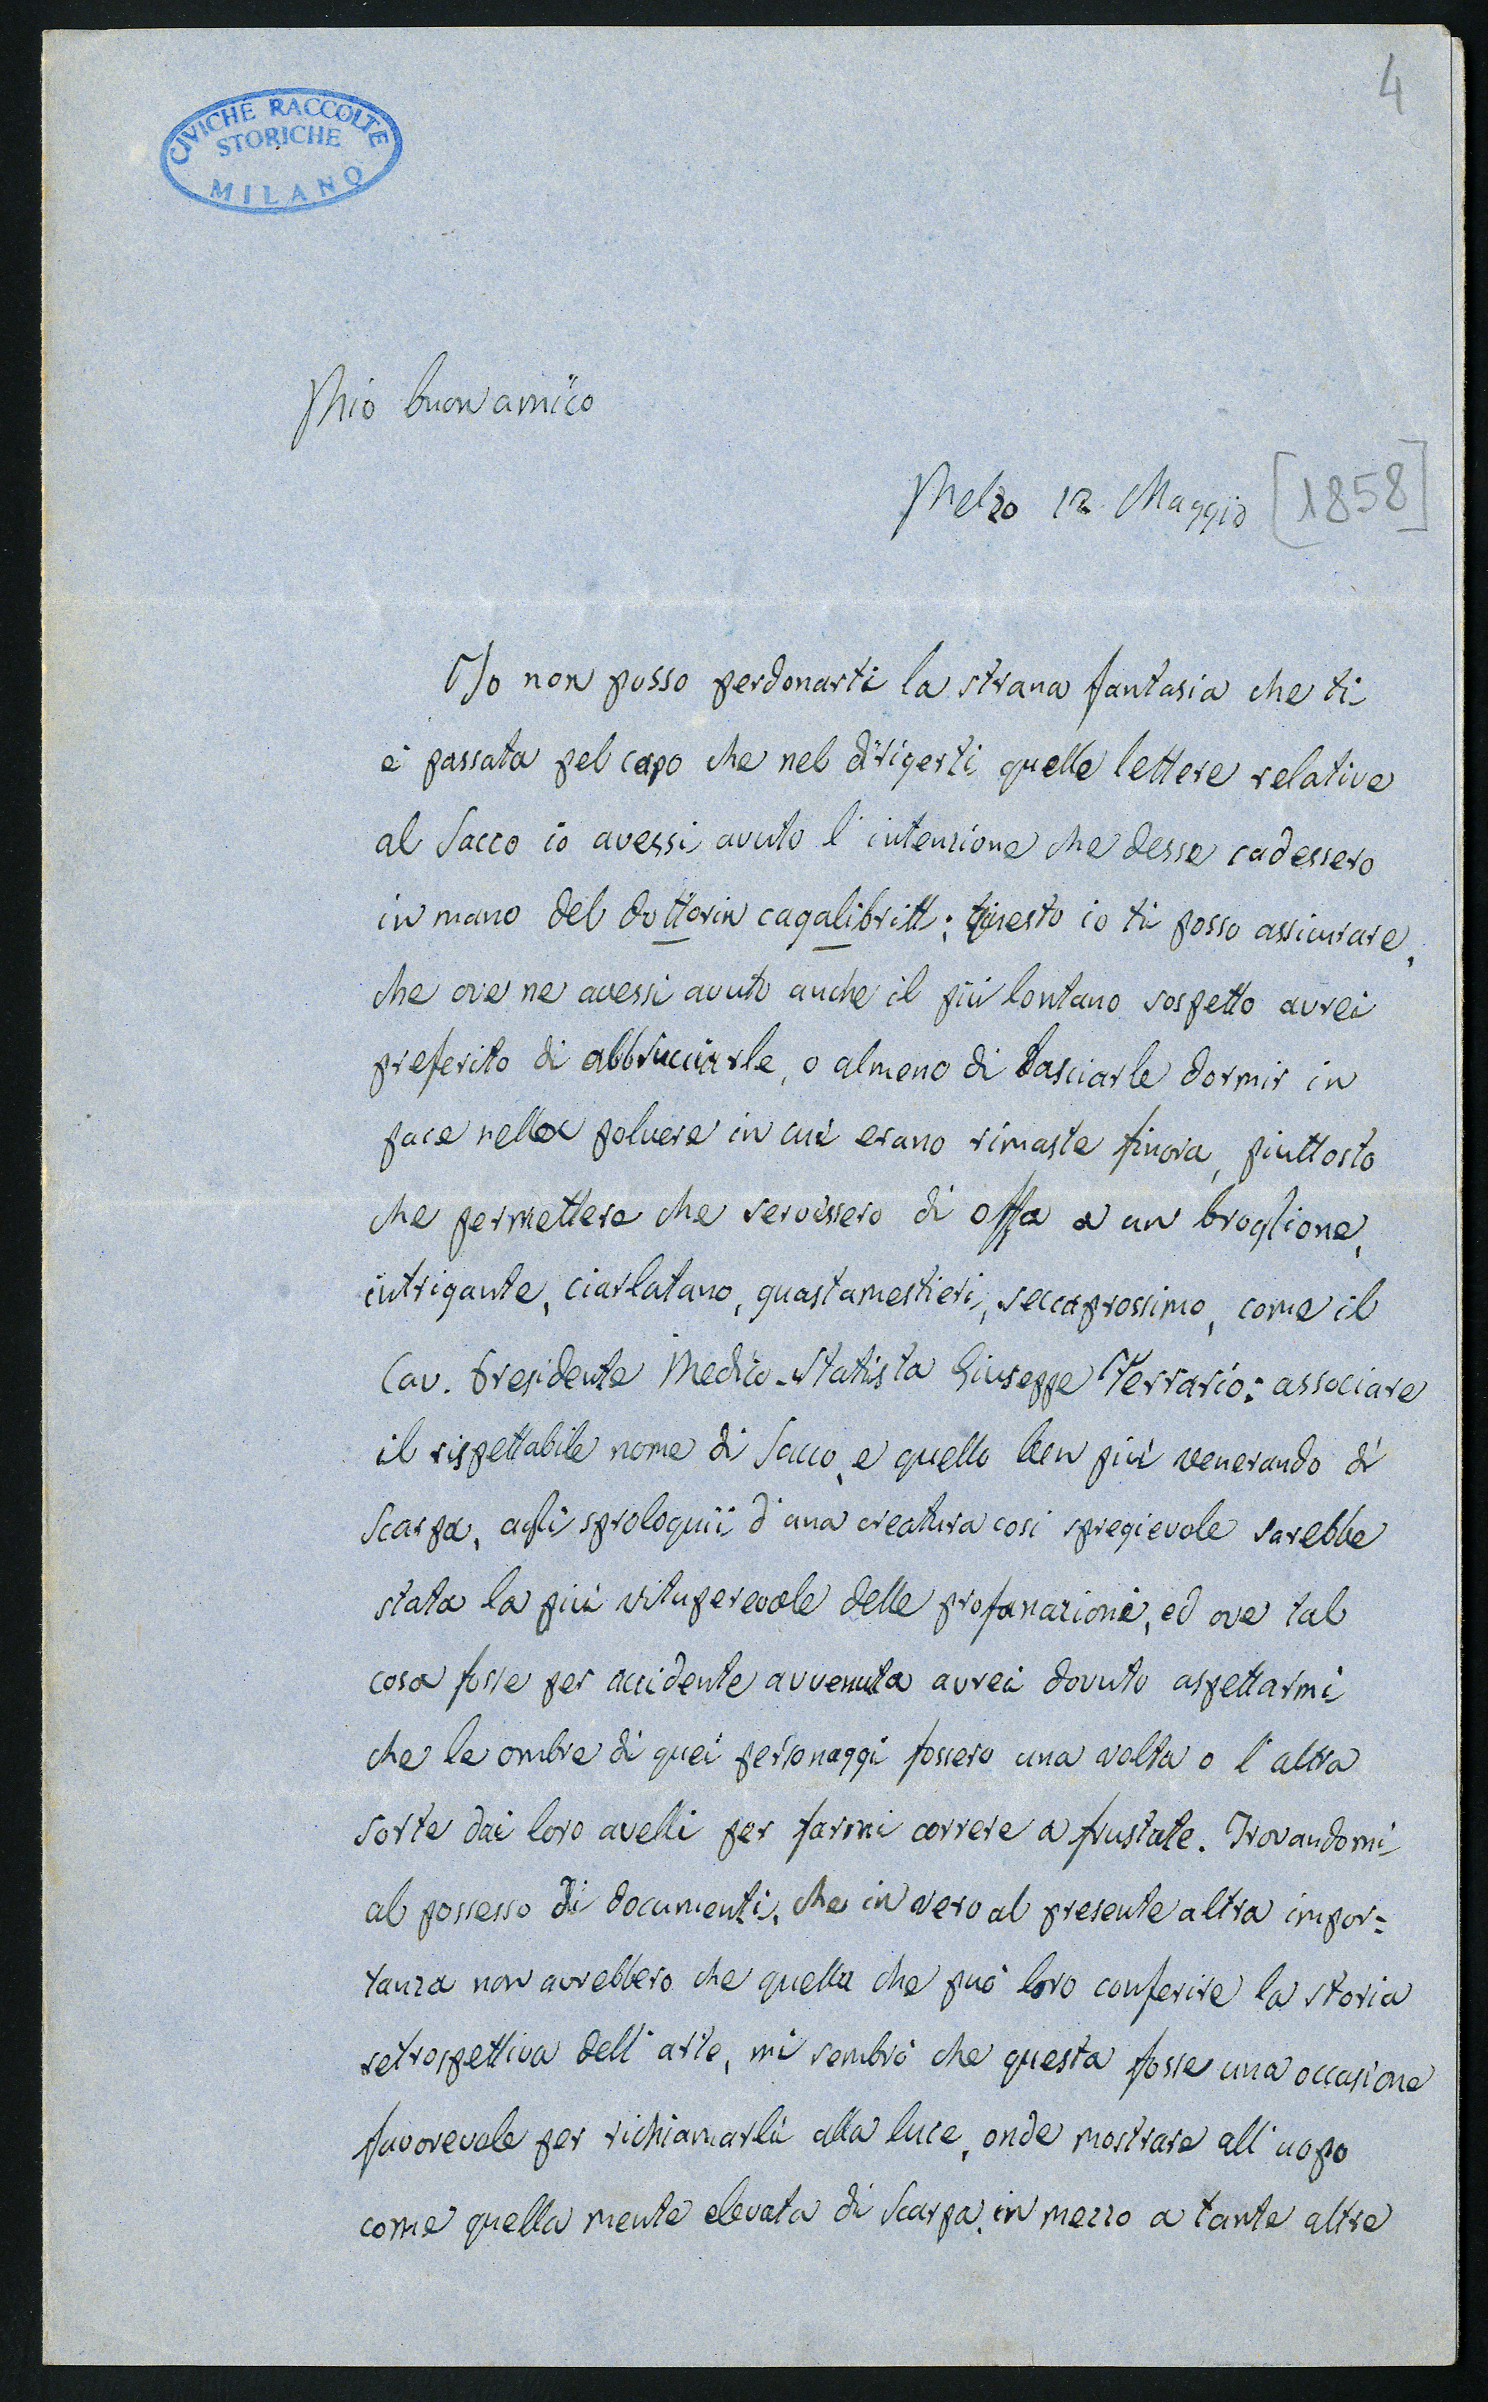 4
CIVICHE RACCOLTE
STORICHE
MILANO
Mio buon amico
Melzo 12 Maggio [1858]
Io non posso perdonarti la strana fantasia che ti
è passata pel capo che nel dirigerti quelle lettere relative
al Sacco io avessi avuto l'intenzione che desse cadessero
in mano del dottorin cagalibritt; questo io ti posso assicurare,
che ove ne avessi avuto anche il più lontano sospetto avrei
preferito di abbrucciarle, o almeno di lasciarle dormir in
pace nella polvere in cui erano rimaste finora, piuttosto
che permettere che servissero di offa a un broglione,
intrigante, ciarlatano, guastamestieri, seccaprossimo, come il
Cav. Presidente Medico-Statista Giuseppe Ferrario: associare
il rispettabile nome di Sacco, e quello ben più venerando di
Scarpa, agli sproloquii d'una creatura così spregievole sarebbe
stata la più vituperevole delle profanazioni, ed ove tal
cosa fosse per accidente avvenuta avrei dovuto aspettarmi
che le ombre di quei personaggi fossero una volta o l'altra
sorte dai loro avelli per farmi correre a frustate. Trovandomi
al possesso di documenti, che in vero al presente altra impor=
tanza non avrebbero che quella che può loro conferire la storia
retrospettiva dell'arte, mi sembrò che questa fosse una occasione
favorevole per richiamarli alla luce, onde mostrare all'uopo
come quella mente elevata di Scarpa, in mezzo a tante altre